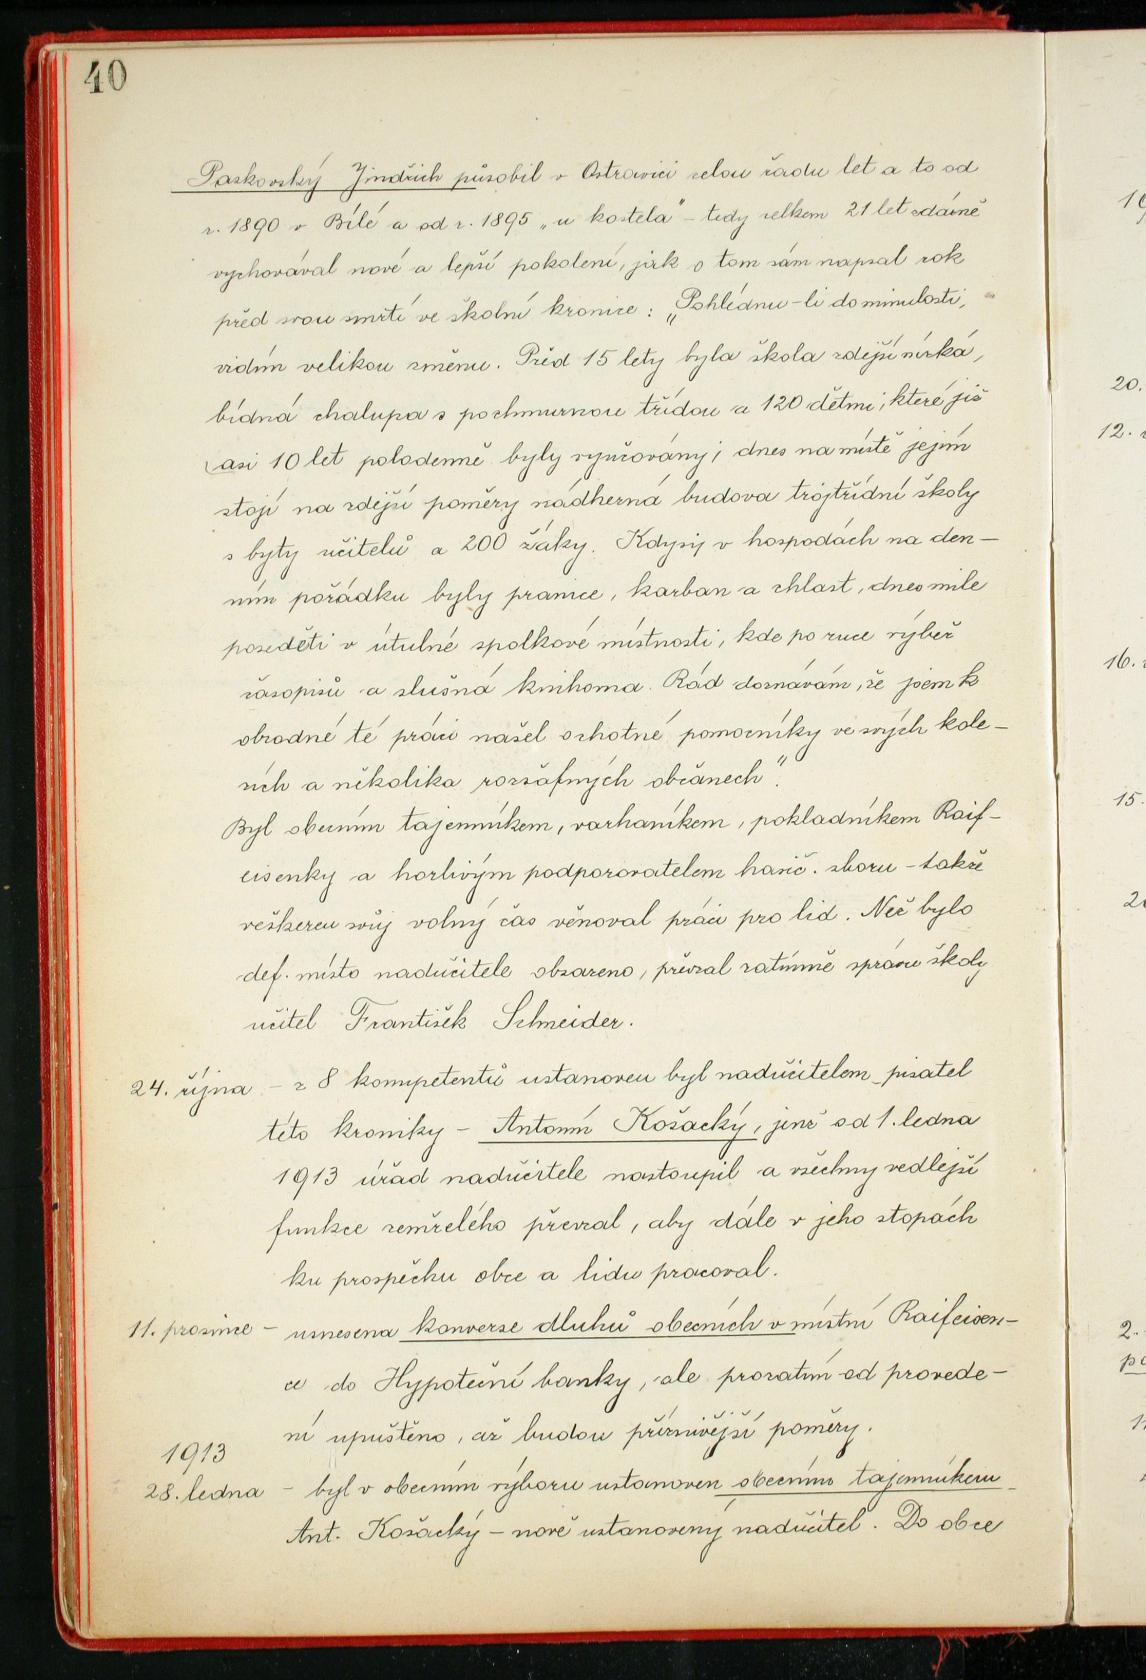 40
Paskovský Jindřich působil v Ostravici celou řadu let a to od
r. 1890 v Bílé a od r. 1895 „u kostela" – tedy celkem 21 let zdárně
vychovával nové a lepší pokolení, jak o tom sám napsal rok
před svou smrtí ve školní kronice: „Pohlédnu-li do minulosti,
vidím velikou změnu. Před 15 lety byla škola zdejší nízká,
bídná chalupa s pochmurnou třídou a 120 dětmi, které již
asi 10 let polodenně byly vyučovány; dnes na místě jejím
stojí na zdejší poměry nádherná budova trojtřídní školy
s byty učitelů a 200 žáky. Kdysi v hospodách na den-
ním pořádku byly pranice, karban a chlast, dnes mile
poseděti v útulné spolkové místnosti, kde po ruce výběr
časopisů a slušná knihovna. Rád doznávám, že jsem k
obrodné té práci našel ochotné pomocníky ve svých kole-
zích a několika rozšafných občanech".
Byl obecním tajemníkem, varhaníkem, pokladníkem Raif-
eisenky a horlivým podporovatelem hasič. sboru – takže
veškeren svůj volný čas věnoval práci pro lid. Než bylo
def. místo nadučitele obsazeno, převzal zatímně správu školy
učitel František Schneider.
24. října – z 8 kompetentů ustanoven byl nadučitelem pisatel
této kroniky – Antonín Košacký, jenž od 1. ledna
1913 úřad nadučitele nastoupil a všechny vedlejší
funkce zemřelého převzal, aby dále v jeho stopách
ku prospěchu obce a lidu pracoval.
11. prosince – usnesena konverse dluhů obecních v místní Raifeisen-
ce do Hypoteční banky, ale prozatím od provede-
ní upuštěno, až budou příznivější poměry.
1913
28. ledna – byl v obecním výboru ustanoven obecním tajemníkem
Ant. Košacký – nově ustanovený nadučitel. Do obce
20.
12.
16.
15.
2.